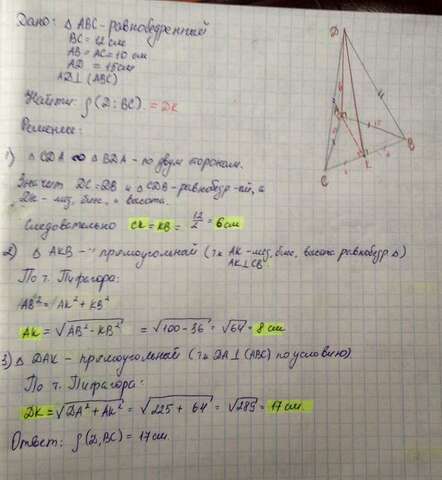 Дано: △ ABC - равнобедренный
BC = 12 см
AB = AC = 10 см
AD = 15 см
AD ⊥ (ABC)
Найти: ρ (D; BC). = DK
Решение:
1) △ CDA ∞ △ BDA - по двум сторонам.
Значит DC = DB и △ CDB - равнобедр-ый, а
DK - мед, бис, и высота.
Следовательно CK = KB = 12/2 = 6 см
2) △ AKB - прямоугольный (тк AK - мед, бис, высота равнобедр △)
AK ⊥ CB
По т. Пифагора:
AB² = AK² + KB²
AK = √AB² - KB² = √100 - 36 = √64 = 8 см
3) △ DAK - прямоугольный (тк DA ⊥ (ABC) по условию)
По т. Пифагора:
DK = √DA² + AK² = √225 + 64 = √289 = 17 см.
Ответ: ρ (D, BC) = 17 см.
D
A
C
K
B